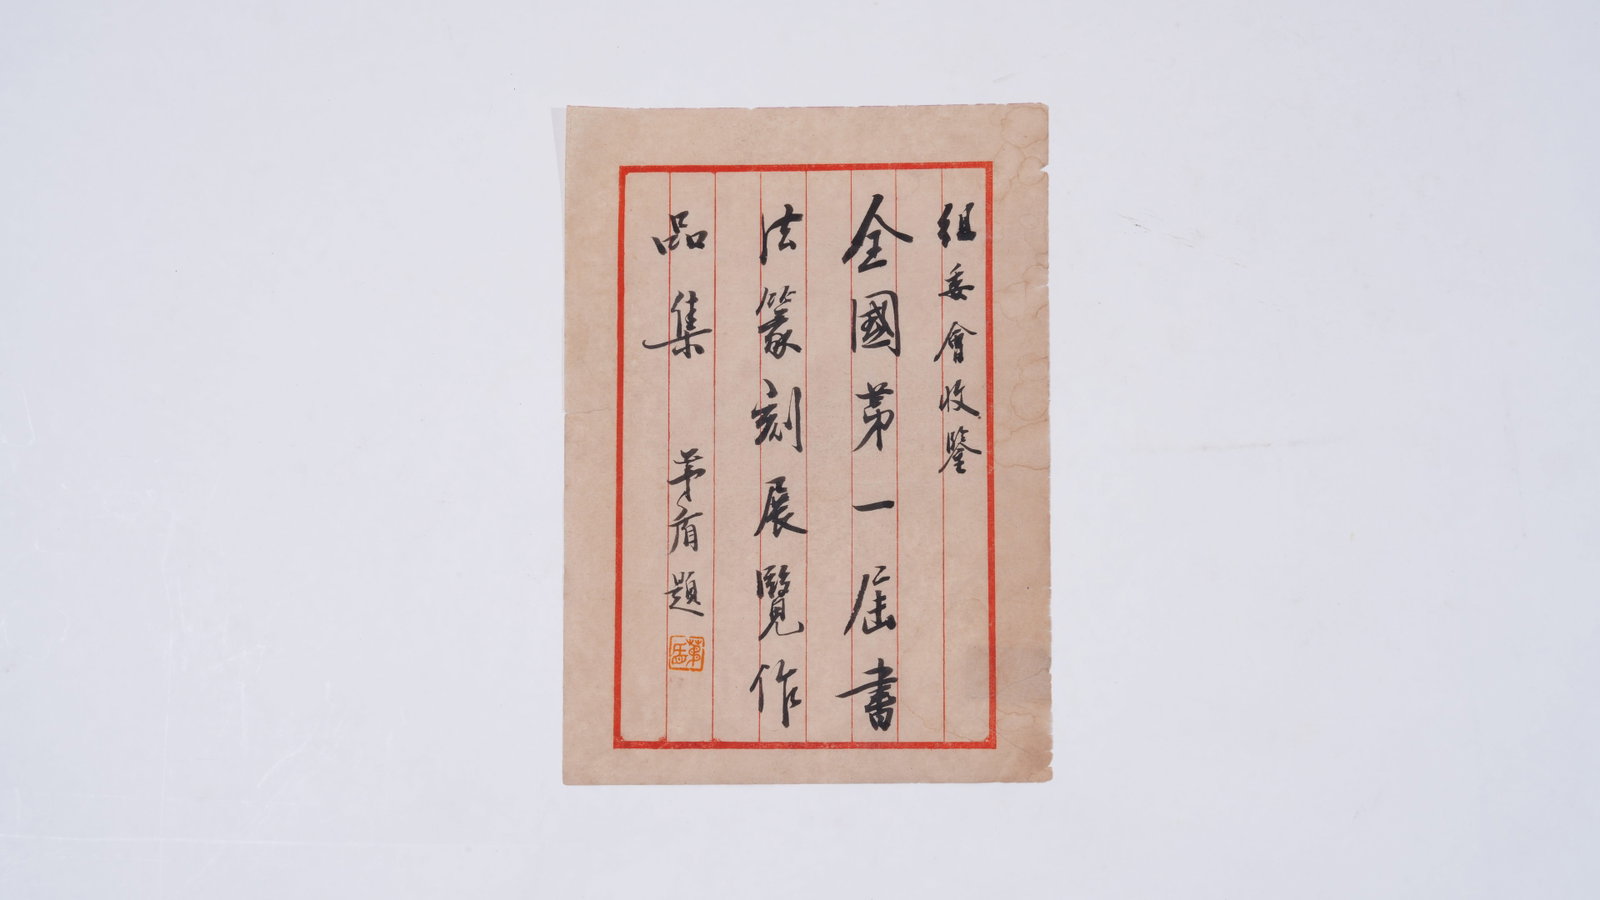 組委會收鑒
全國第一届書
法篆刻展覽作
品集 茅盾題
茅盾